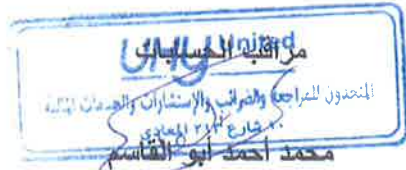 UHY United
مراقب الحسابات
المتحدون للمراجعة والضرائب والإستشارات والخدمات المالية
شارع ٢١٣ المعادى
محمد أحمد أبو القاسم